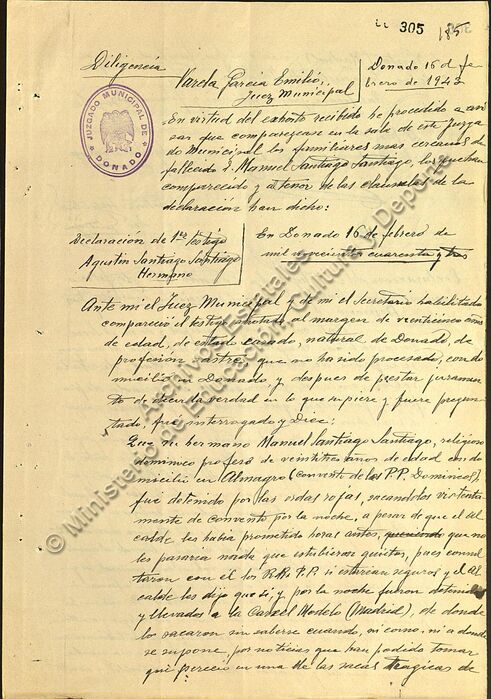 305
185
Diligencia
Varela Garcia Emilio,
Juez Municipal
Donado 16 d fe
brero de 1943
JUZGADO MUNICIPAL DE
DONADO
En virtud del exhorto recibido he procedido a avi
sar que comparezcan en la sala de este Juzga
do Municipal los familiares mas cercanos del
fallecido D. Manuel Santiago Santiago, los que han
comparecido y al tenor de las clausulas de la
declaración han dicho:
Declaración de 1er testigo
Agustin Santiago Santiago
Hermano
En Donado 16 de febrero de
mil novecientos cuarenta y tres
Ante mi el Juez Municipal y de mi el Secretario habilitado
compareció el testigo anotado al margen de veinticinco años
de edad, de estado casado, natural de Donado, de
profesion sastre, que no ha sido procesado, con do
micilio en Donado y despues de prestar juramen
to de decir la verdad en lo que supiere y fuere pregun
tado, fué interrogado y Dice:
Que su hermano Manuel Santiago Santiago, religioso
dominico profeso de veintitres años de edad con do
micilio en Almagro (convento de los P.P. Dominicos),
fué detenido por las ordas rojas, sacandolos violenta
mente de convento por la noche, a pesar de que el al
calde les habia prometido horas antes, que no
les pasaria nada que estubieran quietos, pues consul
taron con el los R.R. P.P. si estarian seguros y el Al
calde les dijo que si, y por la noche fueron detenidos
y llevados a la Carcel Modelo (Madrid), de donde
lo sacaron sin saberse cuando, ni como, ni a donde
se supone, por noticias que han podido tomar
que pereció en una de las sacas tragicas de
© Ministerio de Educación, Cultura y Deporte
Archivos Estatales